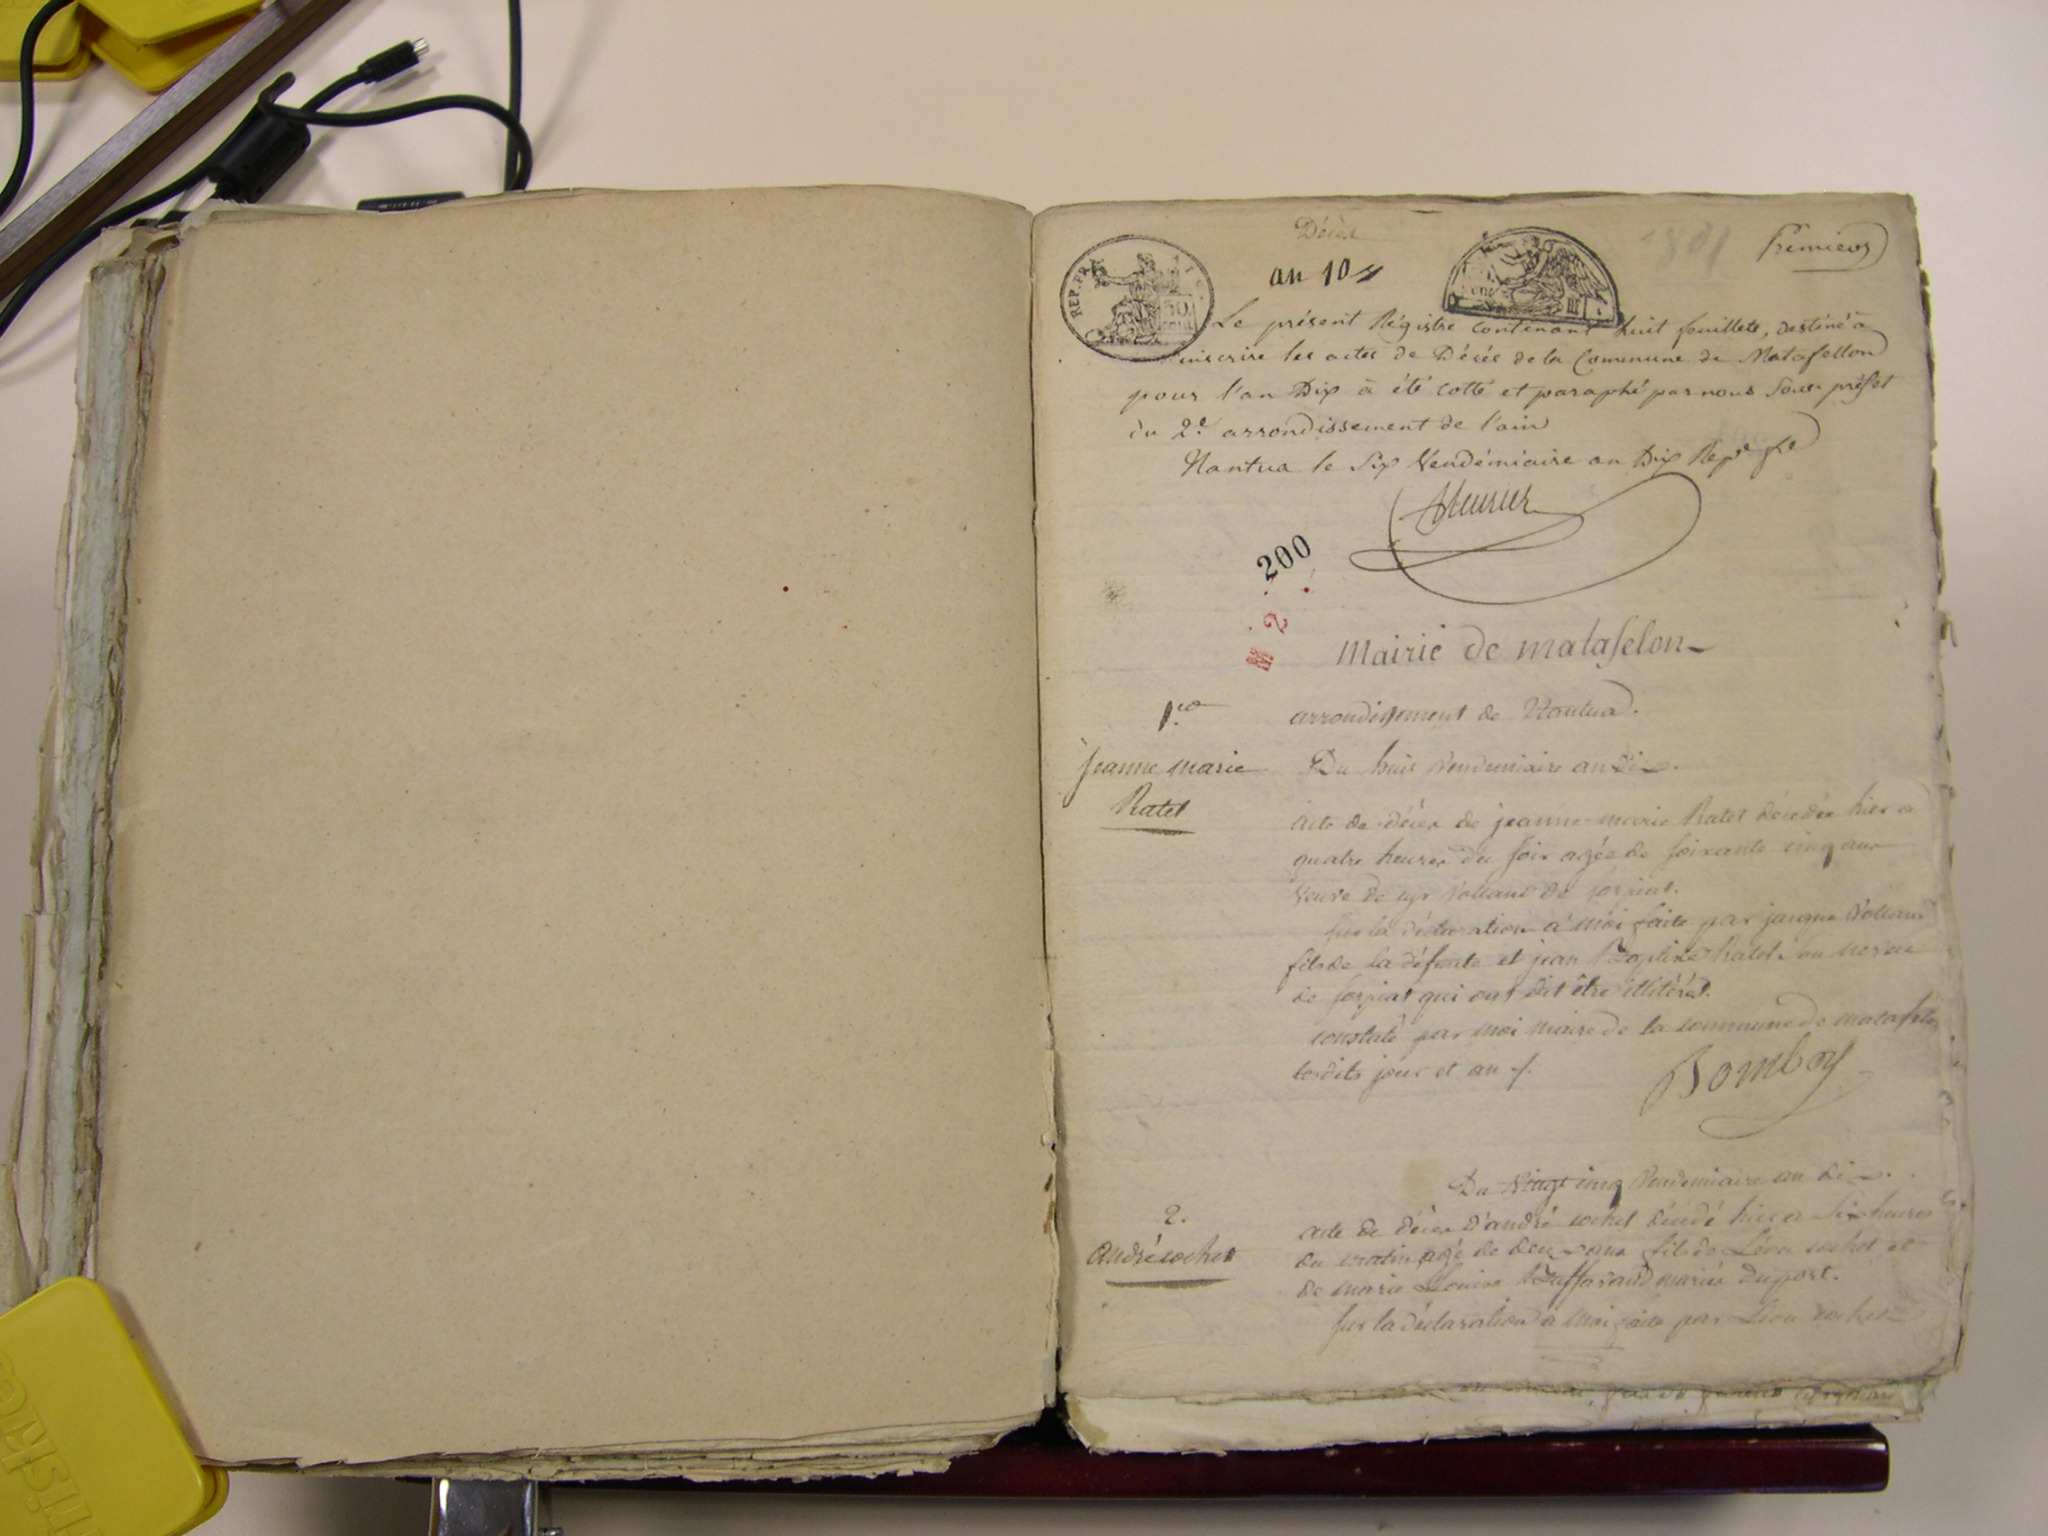 Décès
1801
Premier
an 10
REP. FRA.
Le présent Régistre contenant huit feuillets, destiné à
inscrire les actes de Décès de la Commune de Matafellon
pour l'an Dix à été cotté et paraphé par nous Sous préfet
du 2e. arrondissement de l'ain
Nantua le Six Vendémiaire an Dix Repe fse
200
2
M
Mairie de matafelon
1re
arrondissement de Nantua.
jeanne marie
Ratet
Du huit vendemiaire an dix.
acte de décès de jeanne marie Ratet décédée hier a
quatre heures du soir agée de soixante cinq ans
veuve de
sur la déclaration a moi faite par jaque
fils de la défunte et jean Baptiste Ratet son neveu
de qui ont dit être illitérés.
constaté par moi maire de la commune de matafelon
lesdits jour et an
Bomboy
Du vingt cinq vendemiaire an dix.
2.
andré cochet
acte de décès d'andré cochet décédé hier a six heures
du matin agé de deux ans fils de Léon cochet et
de marie Louise Buffavand mariés duport.
sur la déclaration a moi faite par Léon cochet